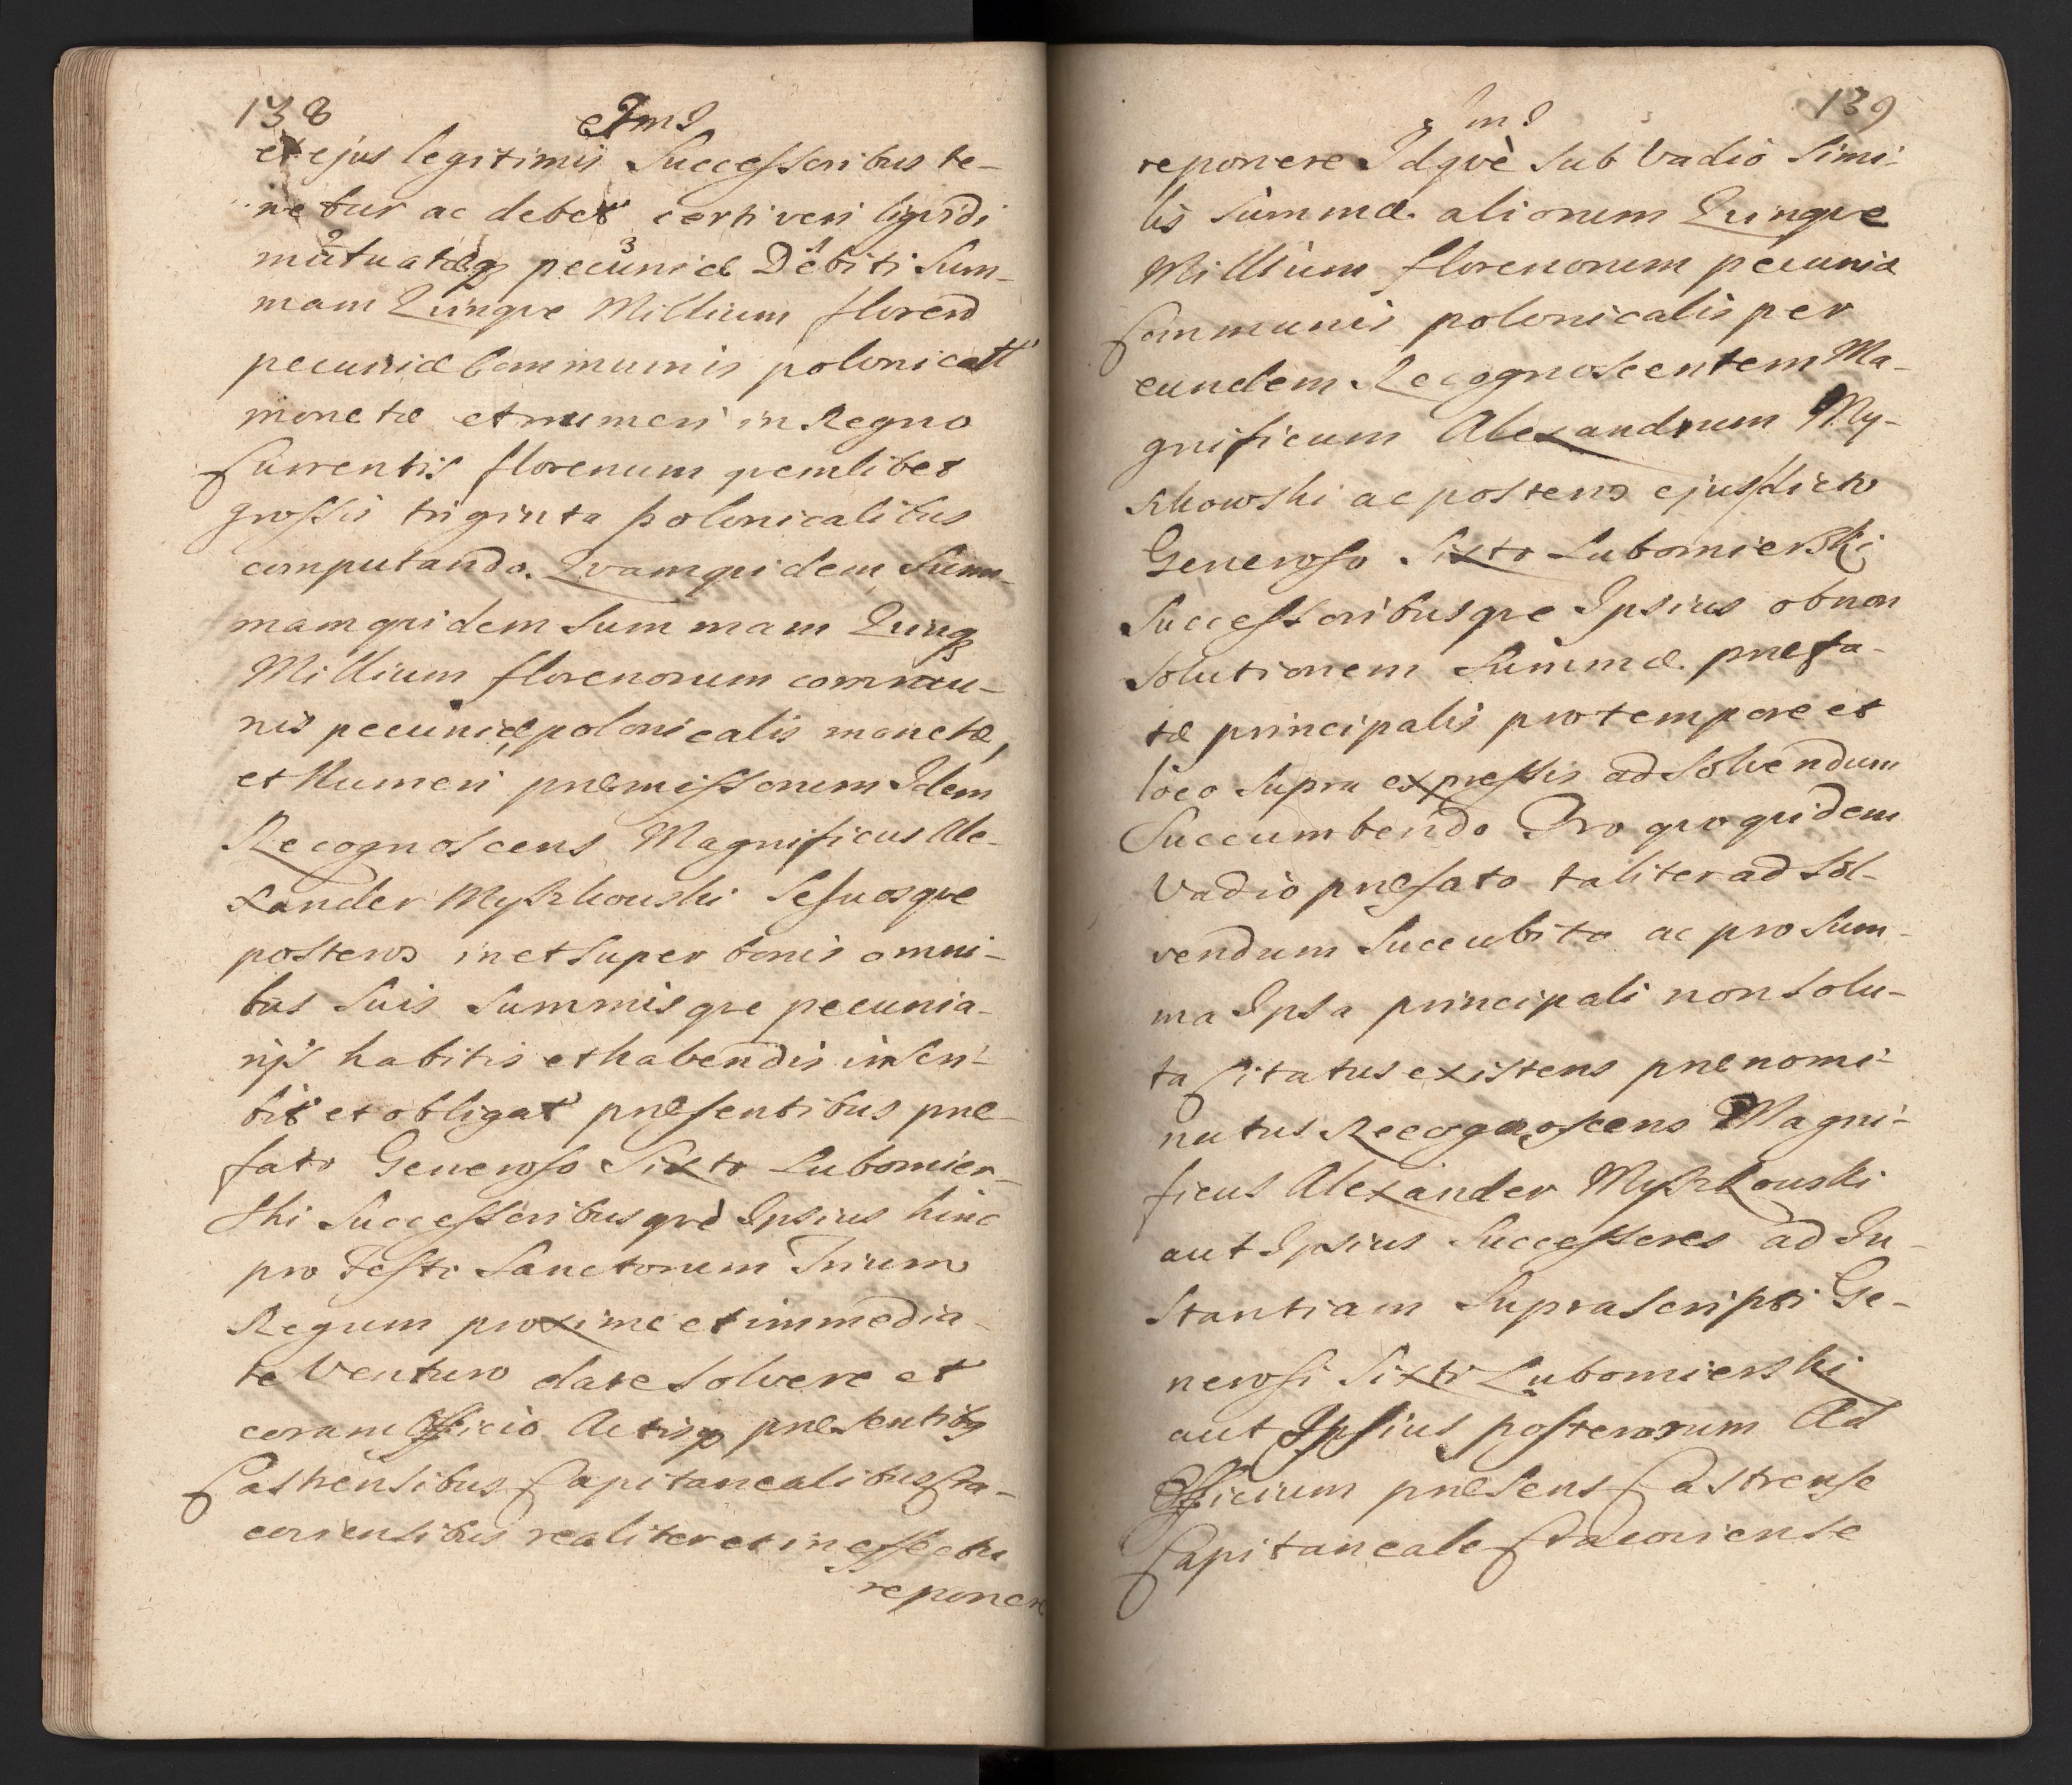 138
et ejus legitimis Successoribus te-
netur ac debet certi veri liqvidi
mutuatæq3 pecuniæ Debiti Sum-
2 3 1
mam Qvinqve Millium floren
pecuniæ Communis polonicatt
monetæ et numeri in Regno
Currentis florenum qvemlibet
grossis triginta polonicalibus
computando. Qvamqvidem Sum-
mamqvidem Summam Qvinq3
Millium florenorum commu-
nis pecuniæ, polonicalis monetæ,
et Numeri præmissorum Idem
Recognoscens Magnificus Ale-
xander Myszkowski Sesuosqve
posteros in et Super bonis omni-
bus Suis Summisqve pecunia-
rijs habitis et habendis inscri-
bit et obligat præsentibus præ-
fato Generoso Sixto Lubomier-
ski Successoribusqvè Ipsius hinc
pro Festo Sanctorum Trium
Regum proxime et immedia-
te Venturo dare Solvere et
coram Officio Actisq3 præsentib9
Castrensibus Capitanealibus Cra-
coviensibus realiter et in effectu
reponere
139
reponere Idqvè Sub Vadio Simi-
lis Summæ aliorum Qvinqve
Millium florenorum pecuniæ
Communis polonicalis per
eundem Recognoscentem Ma-
gnificum Alexandrum My-
szkowski ac posteros ejus dicto
Generoso Sixto Lubomierski
Successoribusqve Ipsius ob non
Solutionem Summæ præfa-
tæ principalis pro tempore et
loco Supra expressis ad Solvendum
Succumbendo Pro qvoqvidem
Vadio præfato taliter ad Sol-
vendum Succubito ac pro Sum-
ma Ipsa principali non Solu-
ta Citatus existens prænomi-
natus Recognoscens Magni-
ficus Alexander Myszkowski
aut Ipsius Successores ad In-
stantiam Suprascripti Ge-
nerosi Sixti Lubomierski
aut Ipsius posterorum Ad
Officium præsens Castrense
Capitaneale Cracoviense